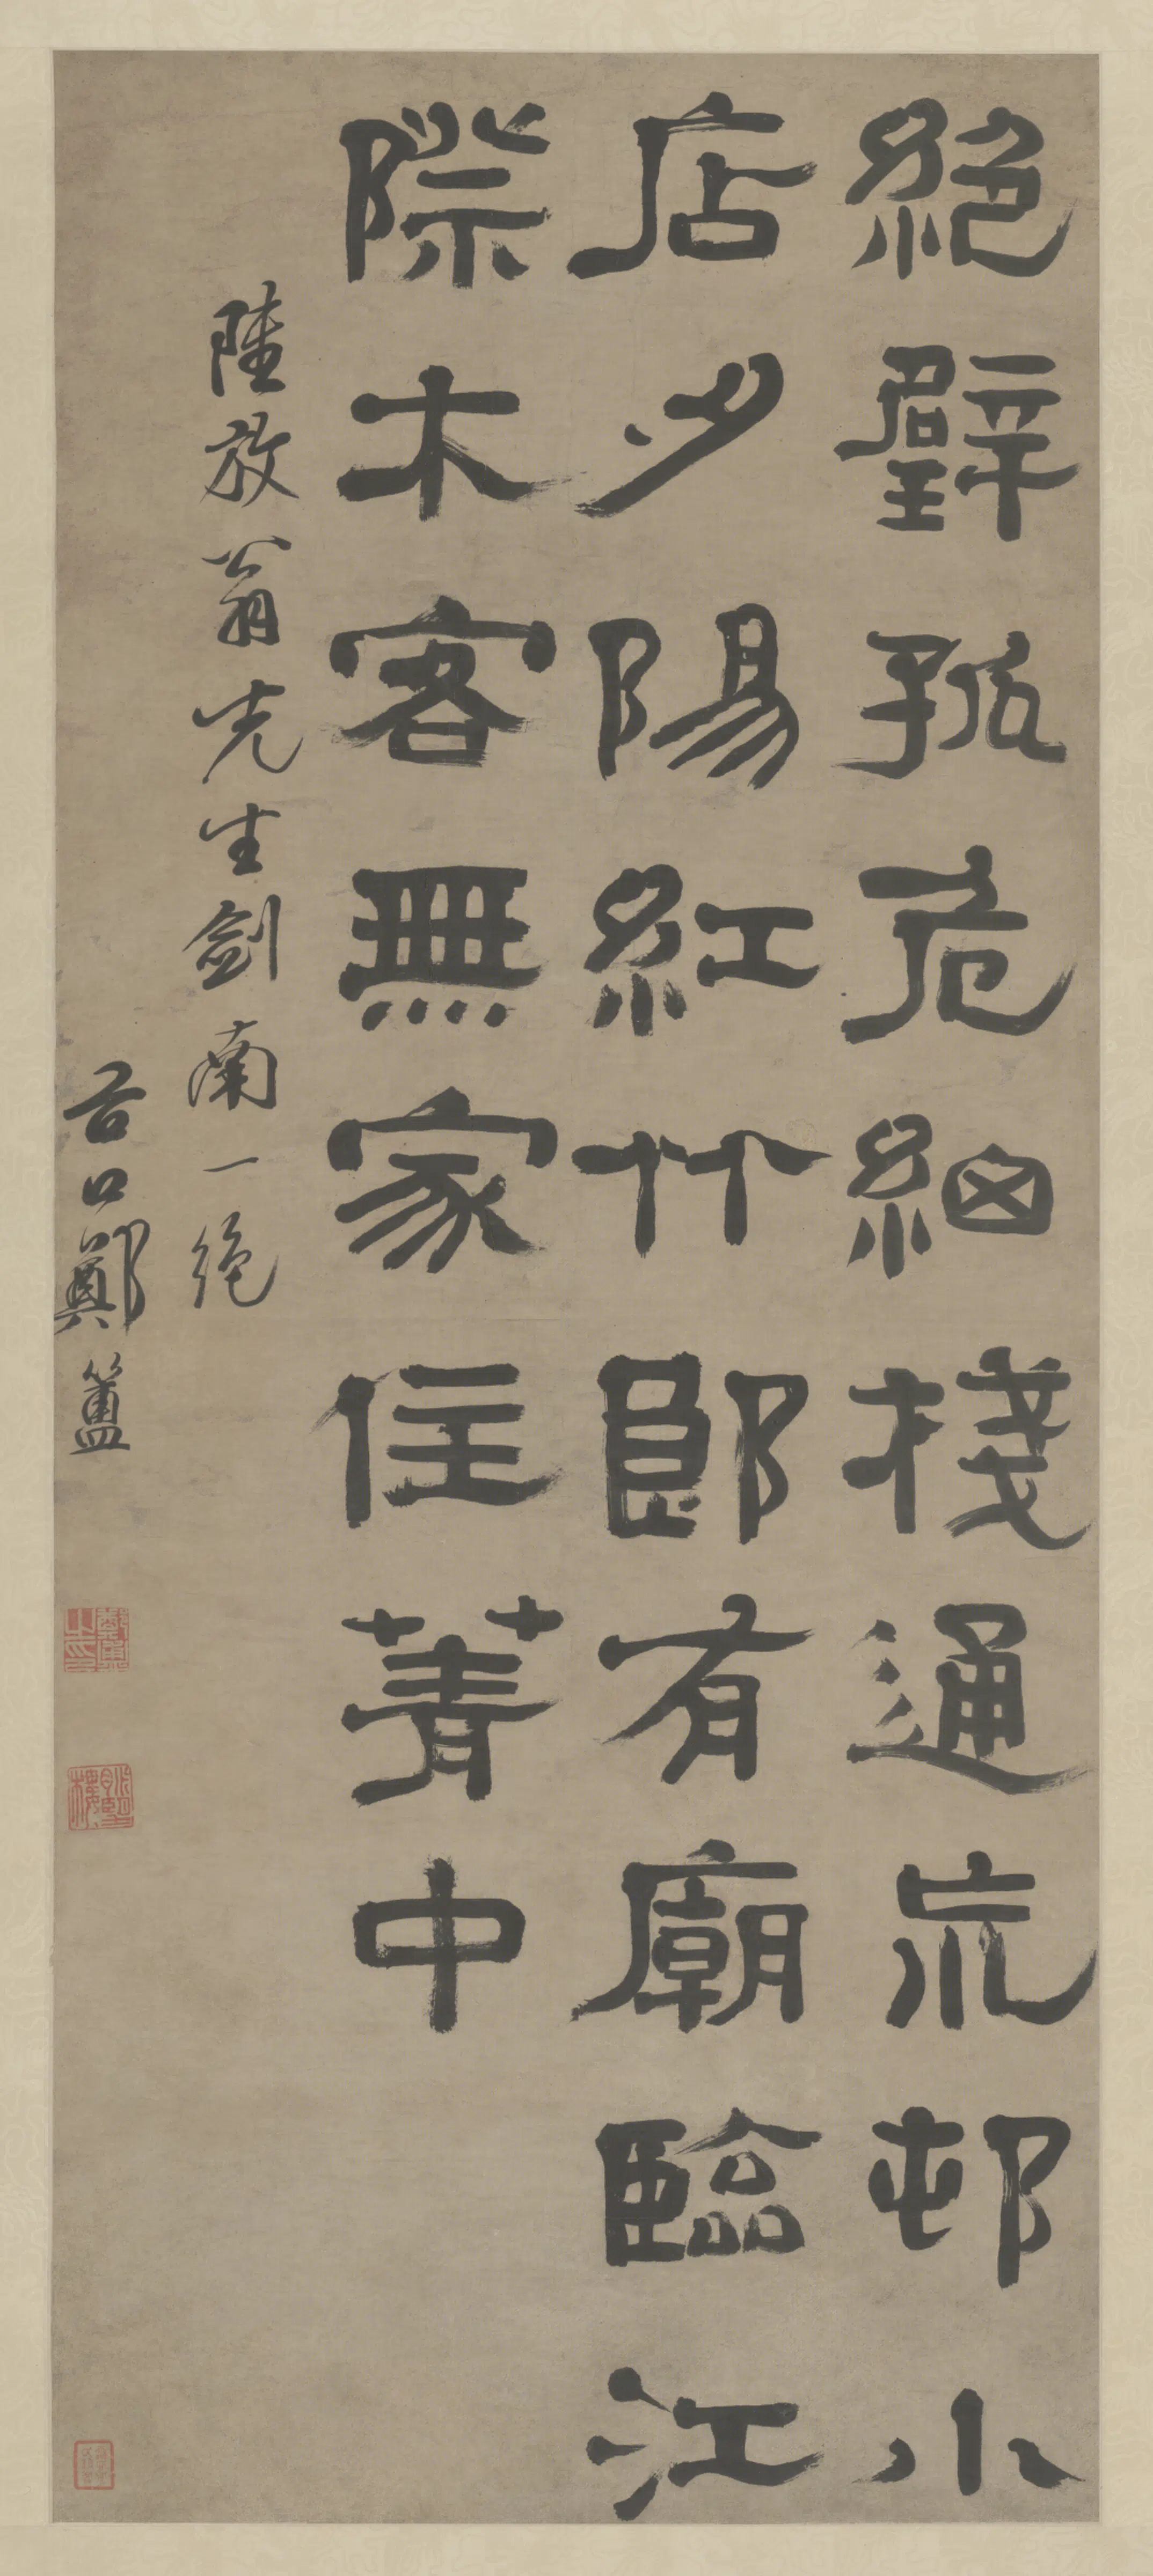 絕壁孤危細棧通荒邨小
店夕陽紅竹郎有廟臨江
際木客無家住菁中
陸放翁先生劍南一絕
谷口鄭簠
鄭簠之印